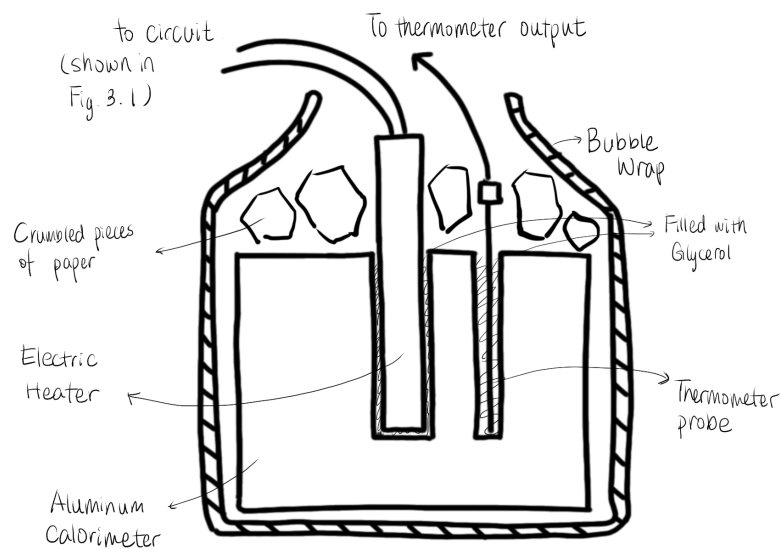 to circuit
(shown in
Fig. 3.1)
To thermometer output
Bubble
Wrap
Crumbled pieces
of paper
Filled with
Glycerol
Electric
Heater
Thermometer
probe
Aluminum
Calorimeter